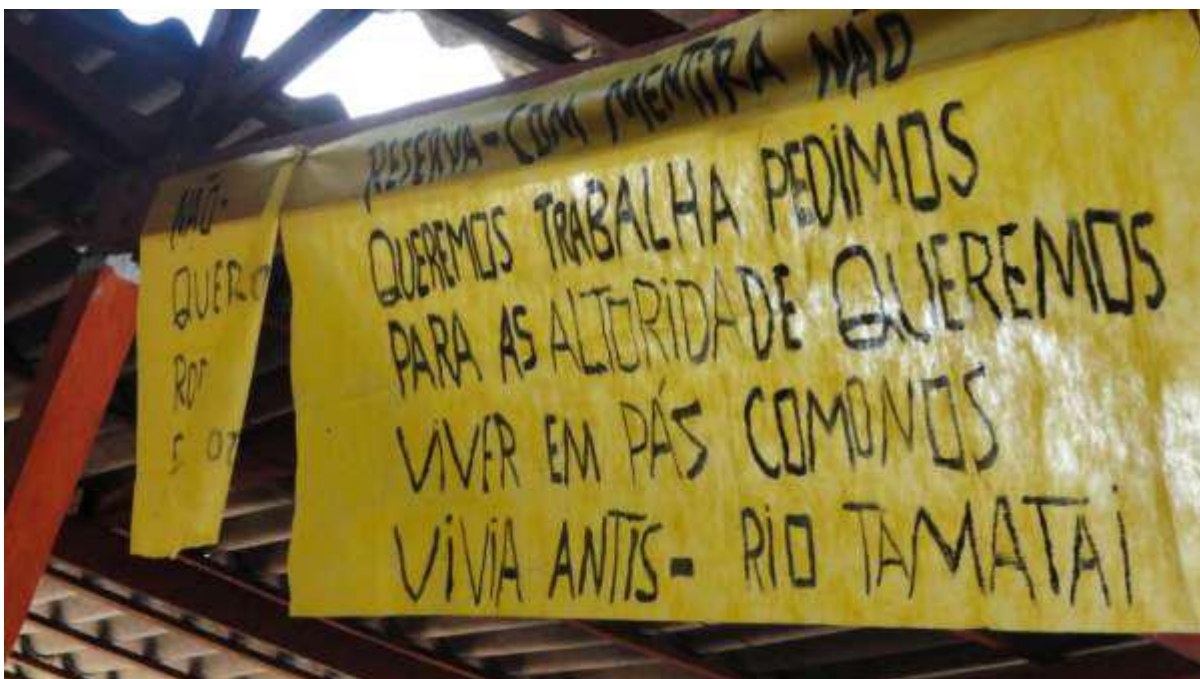 RESERVA-COM MENTIRA NÃO
QUEREMOS TRABALHA PEDIMOS
PARA AS ALTORIDADE QUEREMOS
VIVER EM PÁS COMONOS
VIVIA ANTIS- RIO TAMATAI
NÃO-
QUERO